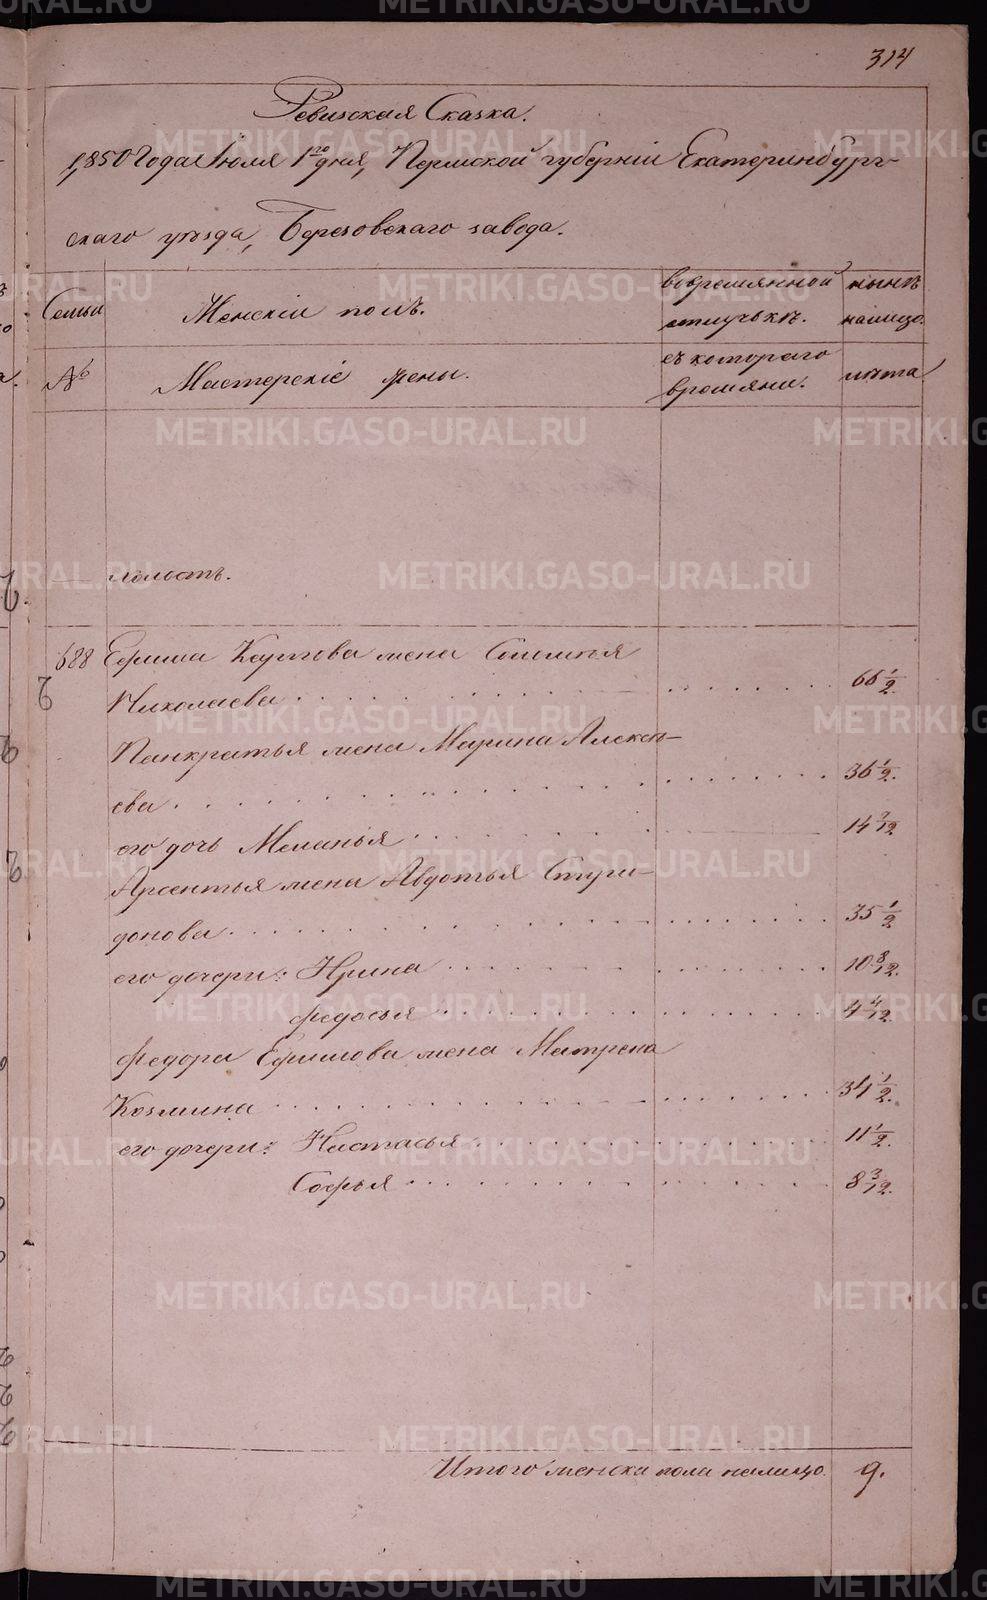 314
Ревизская Сказка.
1850 года Июля 1го дня, Пермской губернiи Екатеринбург-
скаго уѣзда, Березовскаго завода.
Семьи Женскiй полъ. во временной нынѣ
отлучкѣ. налицо.
№ Мастерскiе жены. съ котораго лѣта
времяни.
холостъ.
688 Ефима Карпова жена Соломѣя
Николаева 66 1/2.
Панкратья жена Марина Алексѣ-
ева 36 1/2.
его дочь Меланья 14 7/12
Арсентья жена Авдотья Спири-
донова 35 1/2
его дочери: Ирина 10 8/12.
Федосья 4 4/12.
Федора Ефимова жена Матрена
Козмина 34 1/2.
его дочери: Настасья 11 1/2.
Софья 8 3/12.
Итого женска пола налицо. 9.
METRIKI.GASO-URAL.RU